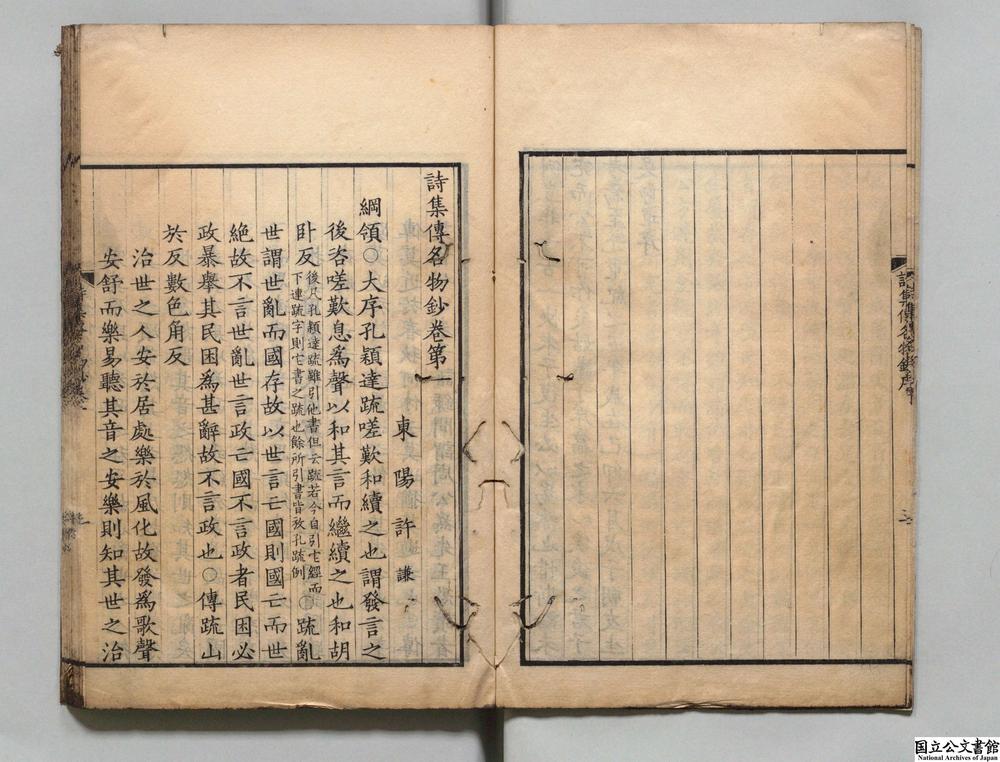 詩集傳名物鈔卷第一
東陽許謙
綱領〇大序孔穎達疏嗟歎和續之也謂發言之
後咨嗟歎息爲聲以和其言而繼續之也和胡
卧反後凡孔穎達疏雖引他書但云疏若今自引它經而
下連疏字則它書之疏也餘所引書皆放孔疏例〇疏亂
世謂世亂而國存故以世言亡國則國亡而世
絶故不言世亂世言政亡國不言政者民困必
政暴舉其民困爲甚辭故不言政也〇傳疏山
於反數色角反
治世之人安於居處樂於風化故發爲歌聲
安舒而樂易聽其音之安樂則知其世之治
国立公文書館
National Archives of Japan